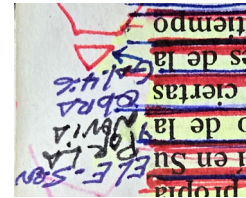 propia
en Su
de la
ciertas
es de la
tiempo
POR LA
NOVIA
OBRA
Gal.4:6